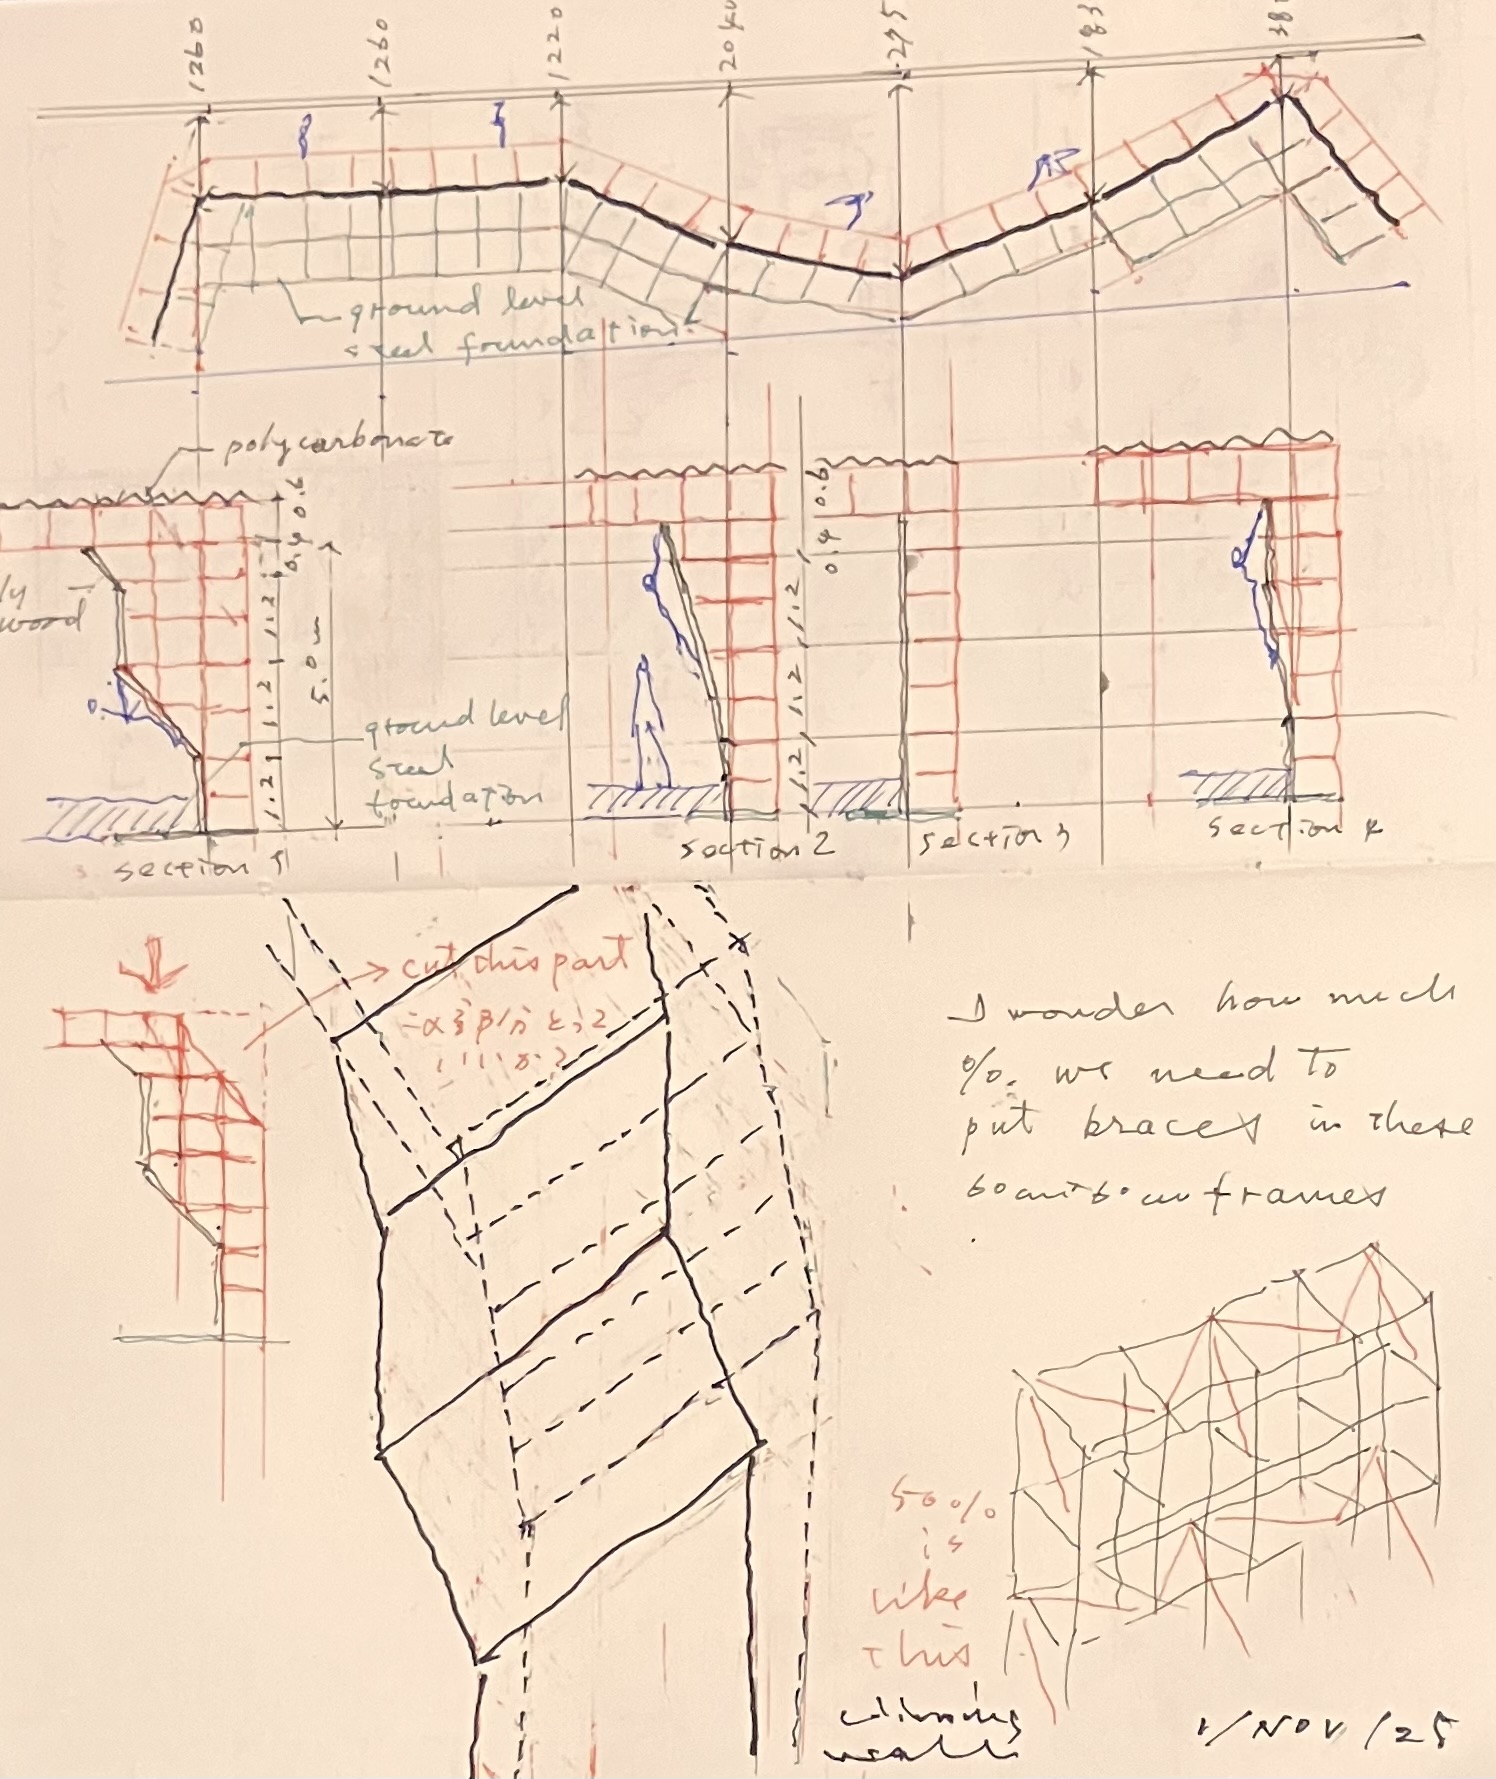 1260
1260
1220
ground level
steel foundation
polycarbonate
0.6
0.4
1.2
1.2
1.2
5.0m
ply
wood
ground level
steel
foundation
0.6
0.4
1.2
1.2
1.2
section 1
section 2
section 3
section 4
cut this part
I wonder how much
%. we need to
put braces in these
60cm 60cm frames
50%
is
like
this
climbing
walls
1/NOV/25